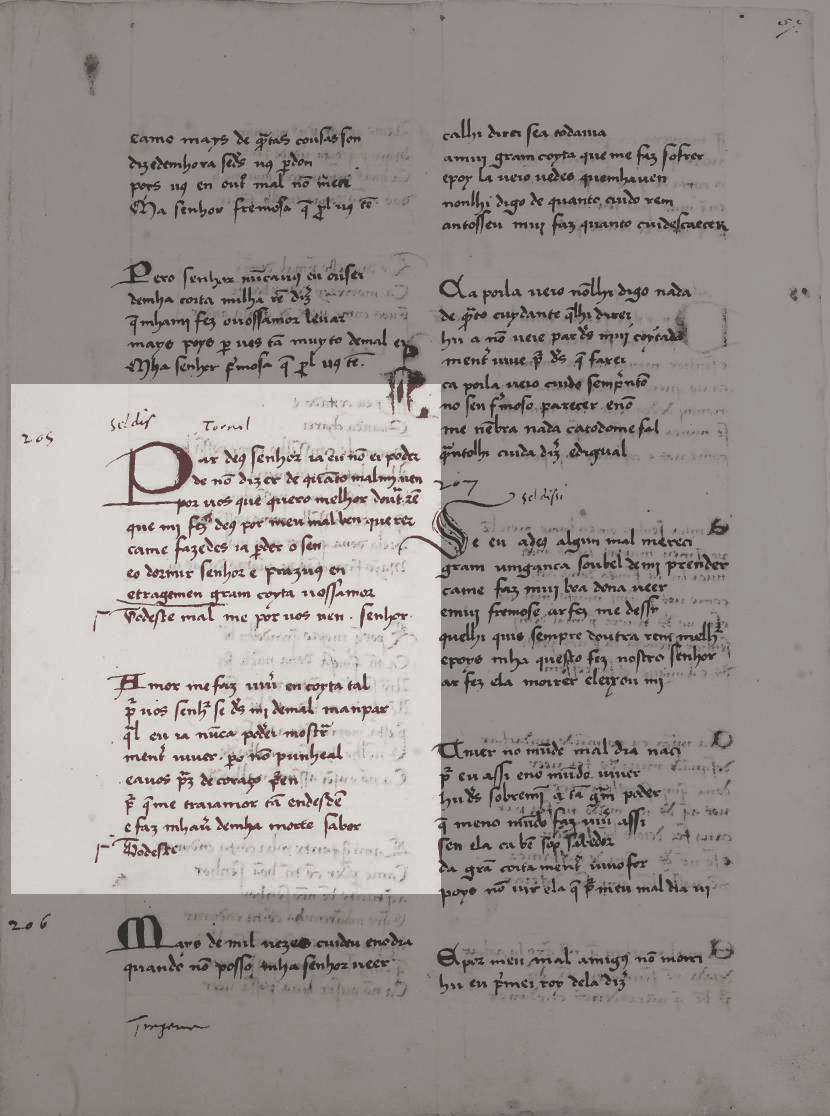 Camo mays de q̃tas cousas son
dizedemhora sed̃s uq̄ p̱don
poys uq̄ en out̊ mal nō m̃eti
Mha senhor fremosa q̃ p̱l uq̄ tē
Pero senhor nũcauq̄ eu ousei
demha coita milha rē diz̃
q̃mhami fez ouossamor leuar
mays poys p̱ ues tã muyto demal ei
Mha senhor f̃mosa q̃ p̱l uq̄ tē.
205
Tornal
Par deq̄ senhor ia eu nō ei poder
de nō dizer de quãto malmi uen
por uos que quero melhor dout̃ rē
que mi fez deq̄ por meu mal ben querer
came fazedes ia p̱der o sen
eo dormir senhor e prazuq̄ en
etragemen gram coyta uossamor
Todeste mal me por uos uen . senhor
Amor me faz uiũ en coyta tal
p̱ uos senhꝛ̃ se d̃s mi demal manpar
q̃l eu ia nũca poderei mostr̃
ment̃ uiuer . po nō punheal
eauos p̃z de coraço p̃en
p̱ q̃me traiamor tã endesdē
e faz mhaũ demha morte sabor
Todeste
206
Mays de mil uezes cuideu enodia
quando nō posso mha senhor ueer
calhi direi sea todauia
amui gram coyta que me faz sofrer
epoy la ueio uedes quemhauen
nonlhi digo de quanto cuido ren
antosseu mui faz quanto cuidescaecer
Ca poila ueio nōlhi digo nada
de q̃to cuydante q̃lhi direi
hu a nō ueie par d̃s mui coytado
ment̃ uiue p̱ d̃s q̃ farei
ca poila ueio cuido semp̃ntō
no seu f̃moso parecer . enō
me nēbra nada caeodome fal
q̃ntolhi cuida diz̃ . edigual
207
Se eu adeq̄ algun mal mereci
gram uingança soubel demi prender
came faz mui bōa dona ueer
emui fremose .ar fez me dessi
quelhi quis sempre doutra ren melhꝛ̃
epoys mha questo fez nostro senhor
ar fez ela morrer eleixou mi
Viuer no mũdē mal dia naci
p̱ eu assi eno mũdo . uiuer
hu d̃s sobremī a tã g̃m poder
q̃ meno mũdo faz uiũ assi
sen ela ca bē sōo sabedor
da grã coita ment̃ uiuo for
poys nō uir ela q̃ p̱ meu mal dia ui
E por meu mal amigq̄ nō morri
hu eu p̃mei roy dela diz̃